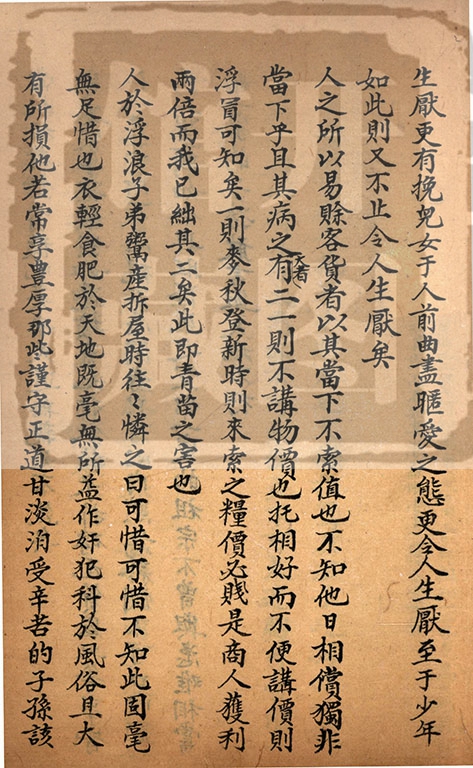 生厭更有挽兒女于人前曲盡暱愛之態更令人生厭至于少年
如此則又不止令人生厭矣
人之所以易賒客貨者以其當下不索值也不知他日相償獨非
當下乎且其病之大者有二一則不講物價也托相好而不便講價則
浮冒可知矣一則麥秋登新時則來索之糧價必賤是商人獲利
兩倍而我已絀其二矣此即青苗之害也
人於浮浪子弟鬻產拆房時往〻憐之曰可惜可惜不知此固毫
無足惜也衣輕食肥於天地既毫無所益作奸犯科於風俗且大
有所損他若常享豐厚那些謹守正道甘淡泊受辛苦的子孫該